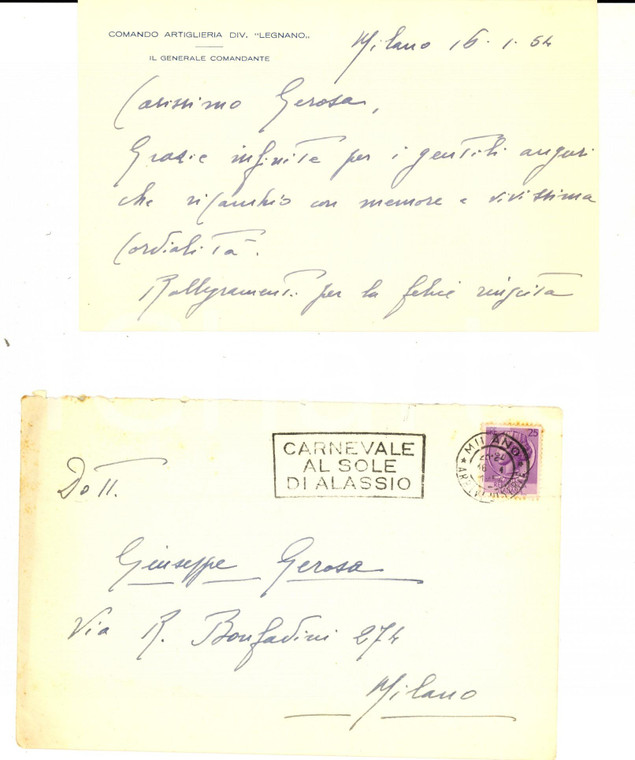 COMANDO ARTIGLIERIA DIV. "LEGNANO"
IL GENERALE COMANDANTE
Milano 16.1.54
Carissimo Gerosa,
Grazie infinite per i gentili auguri
che ricambio con memore e vivissima
cordialità.
Rallegramenti per la felice
CARNEVALE
AL SOLE
DI ALASSIO
MILANO
25
Dott.
Giuseppe Gerosa
Via R. Bonfadini 274
Milano